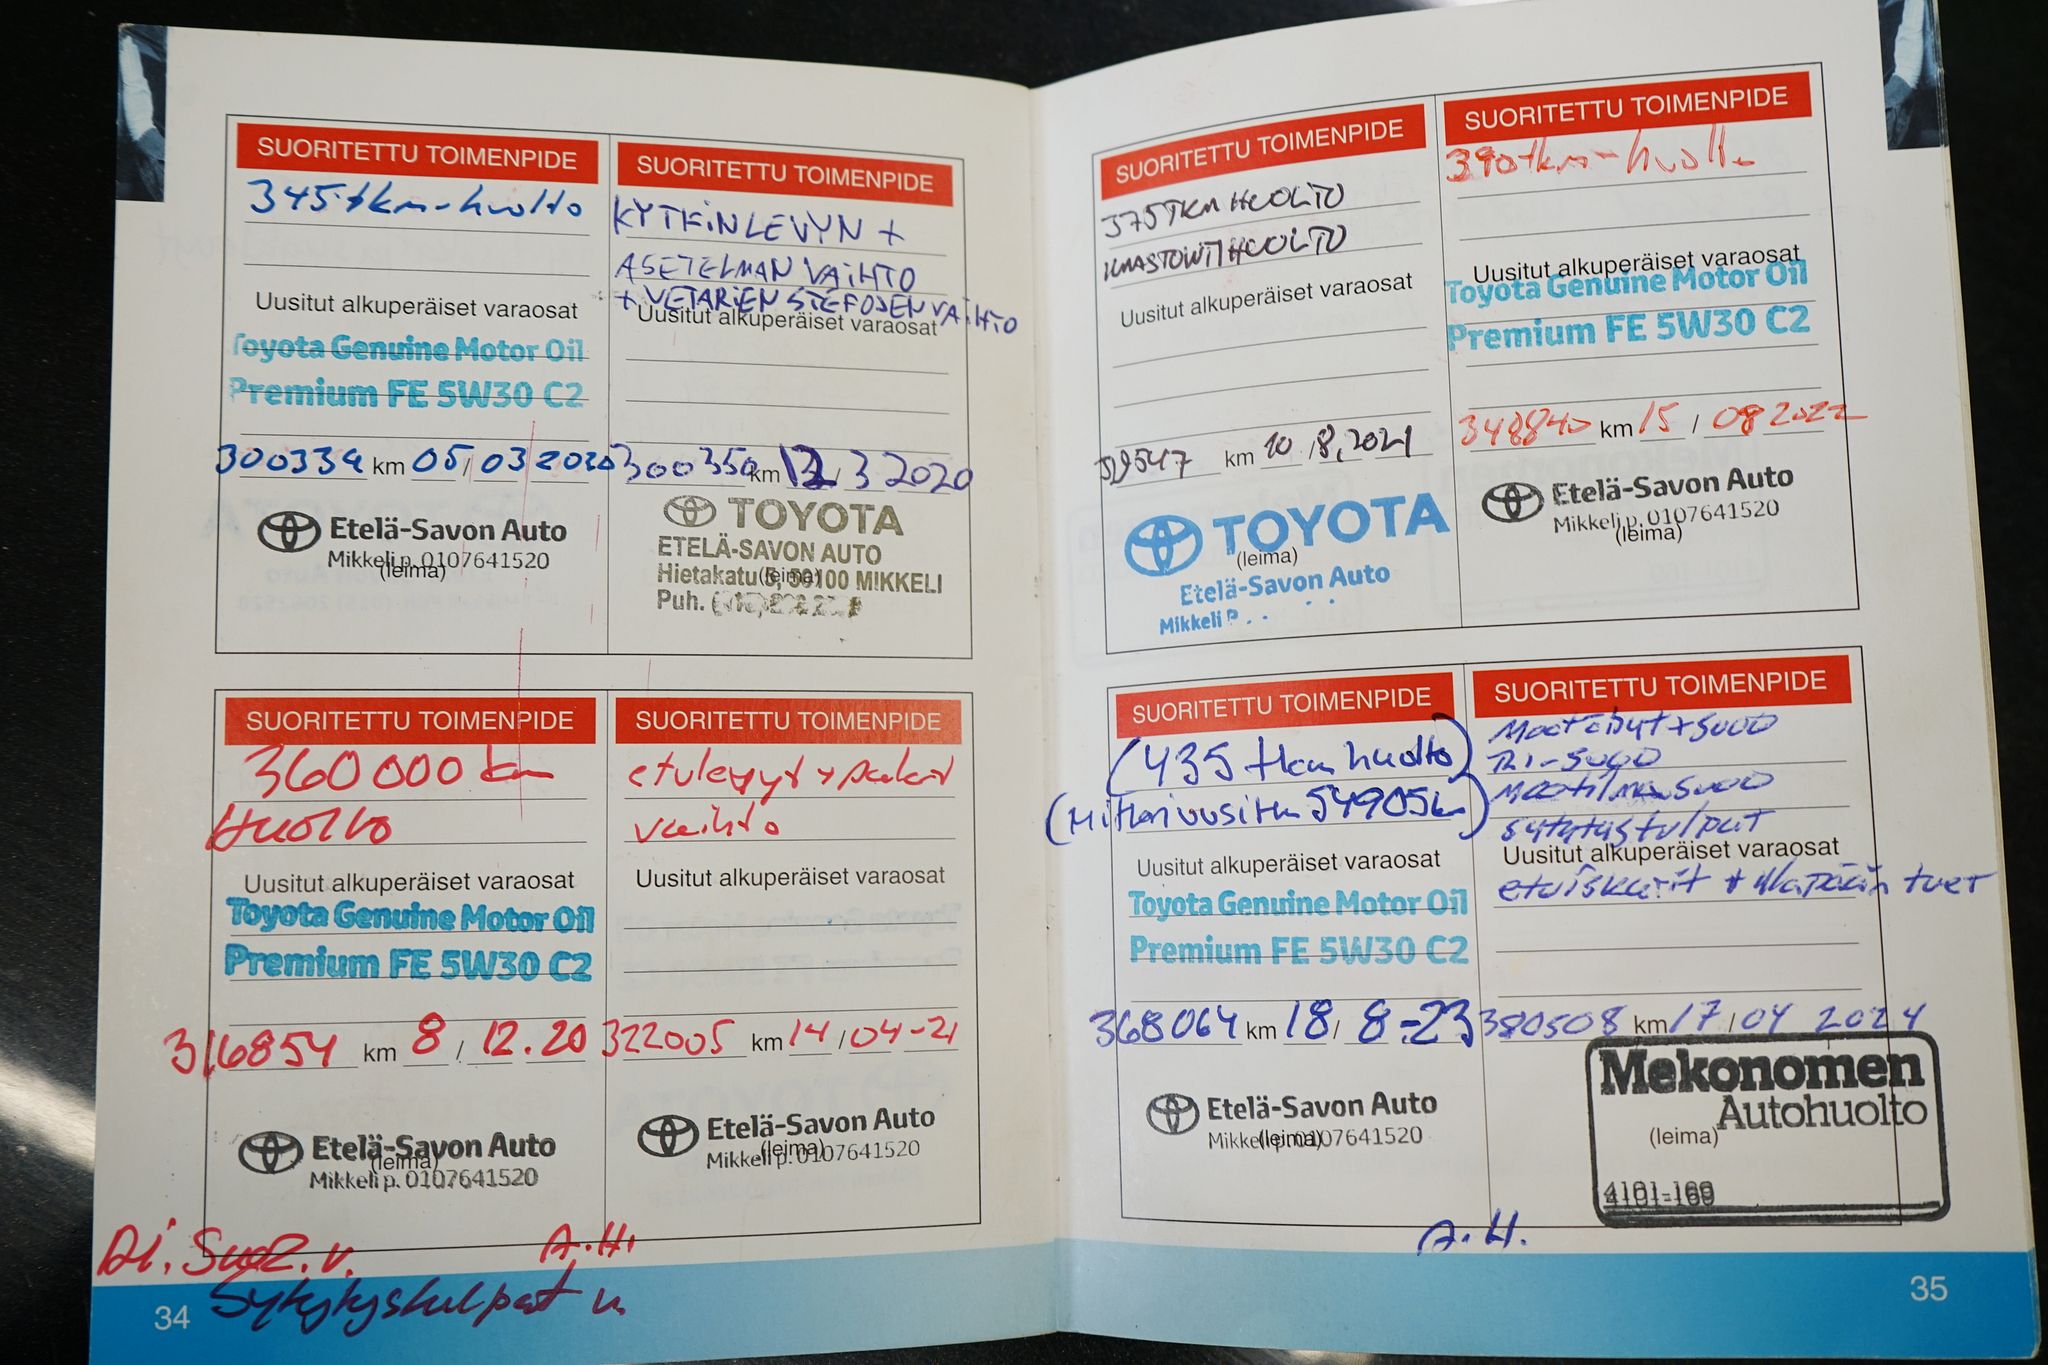 SUORITETTU TOIMENPIDE
345tkm-huolto
Uusitut alkuperäiset varaosat
Toyota Genuine Motor Oil
Premium FE 5W30 C2
300334 km 05/03 2020
Etelä-Savon Auto
Mikkeli p. 0107641520
(leima)
SUORITETTU TOIMENPIDE
KYTKINLEVYN +
ASETELMAN VAIHTO
+ VETARIEN STEFOJEN VAIHTO
Uusitut alkuperäiset varaosat
300350 km 12/3 2020
TOYOTA
ETELÄ-SAVON AUTO
Hietakatu 50100 MIKKELI
(leima)
Puh.
SUORITETTU TOIMENPIDE
360000 km
Huolto
Uusitut alkuperäiset varaosat
Toyota Genuine Motor Oil
Premium FE 5W30 C2
316854 km 8/12.20
Etelä-Savon Auto
(leima)
Mikkeli p. 0107641520
SUORITETTU TOIMENPIDE
etulevyt + palat
vaihto
Uusitut alkuperäiset varaosat
322005 km 14/04-21
Etelä-Savon Auto
(leima)
Mikkeli p. 0107641520
A.H.
Sytytystulpat v.
34
SUORITETTU TOIMENPIDE
375TKM HUOLTO
ILMASTOINTIHUOLTO
Uusitut alkuperäiset varaosat
km 10/8,2021
TOYOTA
(leima)
Etelä-Savon Auto
Mikkeli P
SUORITETTU TOIMENPIDE
390tkm-huolto
Uusitut alkuperäiset varaosat
Toyota Genuine Motor Oil
Premium FE 5W30 C2
348840 km 15/08 2022
Etelä-Savon Auto
Mikkeli p. 0107641520
(leima)
SUORITETTU TOIMENPIDE
(435 tkm huolto)
(Mittari uusittu 54905km)
Uusitut alkuperäiset varaosat
Toyota Genuine Motor Oil
Premium FE 5W30 C2
368064 km 18/8-23
Etelä-Savon Auto
Mikkeli p. 0107641520
(leima)
A.H.
SUORITETTU TOIMENPIDE
Moottoriöljyt + suod
Moottilmansuod
sytytystulpat
Uusitut alkuperäiset varaosat
etuiskarit + yläpään
380508 km 17/04 2024
Mekonomen
Autohuolto
(leima)
4101-160
35